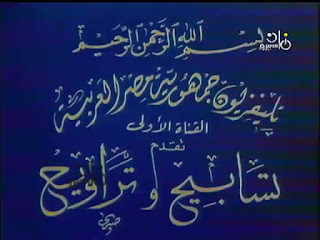 بسم الله الرحمن الرحيم
تليفزيون جمهورية مصر العربية
القناة الأولى
تقدم
تسابيح وتراويح